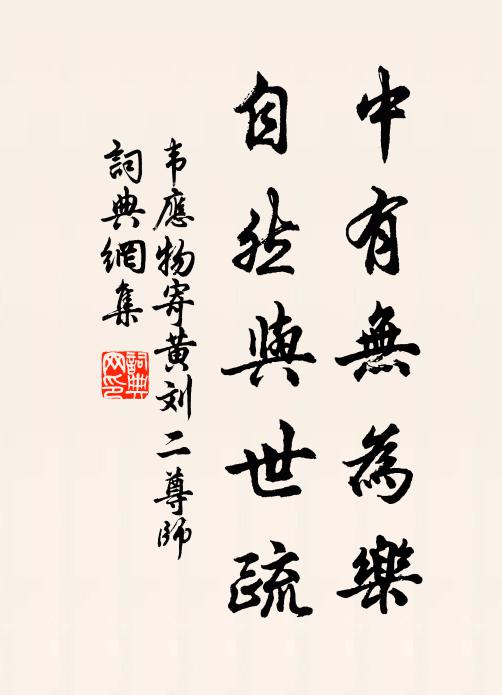 中有無為樂
自然與世疏
韦應物寄黄刘二尊師
詞典網集
詞典网印